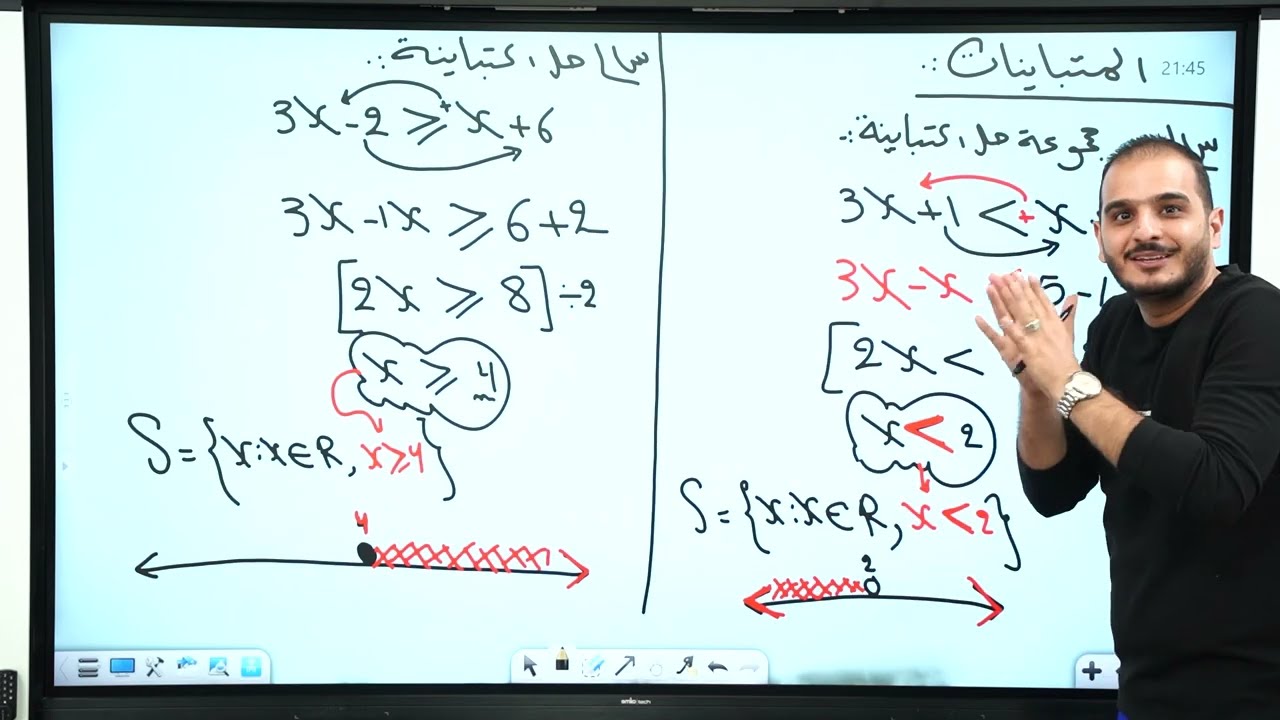 المتباينات :.
21:45
س١/ جد مجموعة حل المتباينة :.
3x+1 < + x
3x-x 5-1
[2x <
x < 2
S={x:x∈R, x<2}
2
س٢/ حل المتباينة :.
3x-2 ≥ + x+6
3x-1x ≥ 6+2
[2x ≥ 8] ÷2
x ≥ 4
S={x:x∈R, x≥4}
4